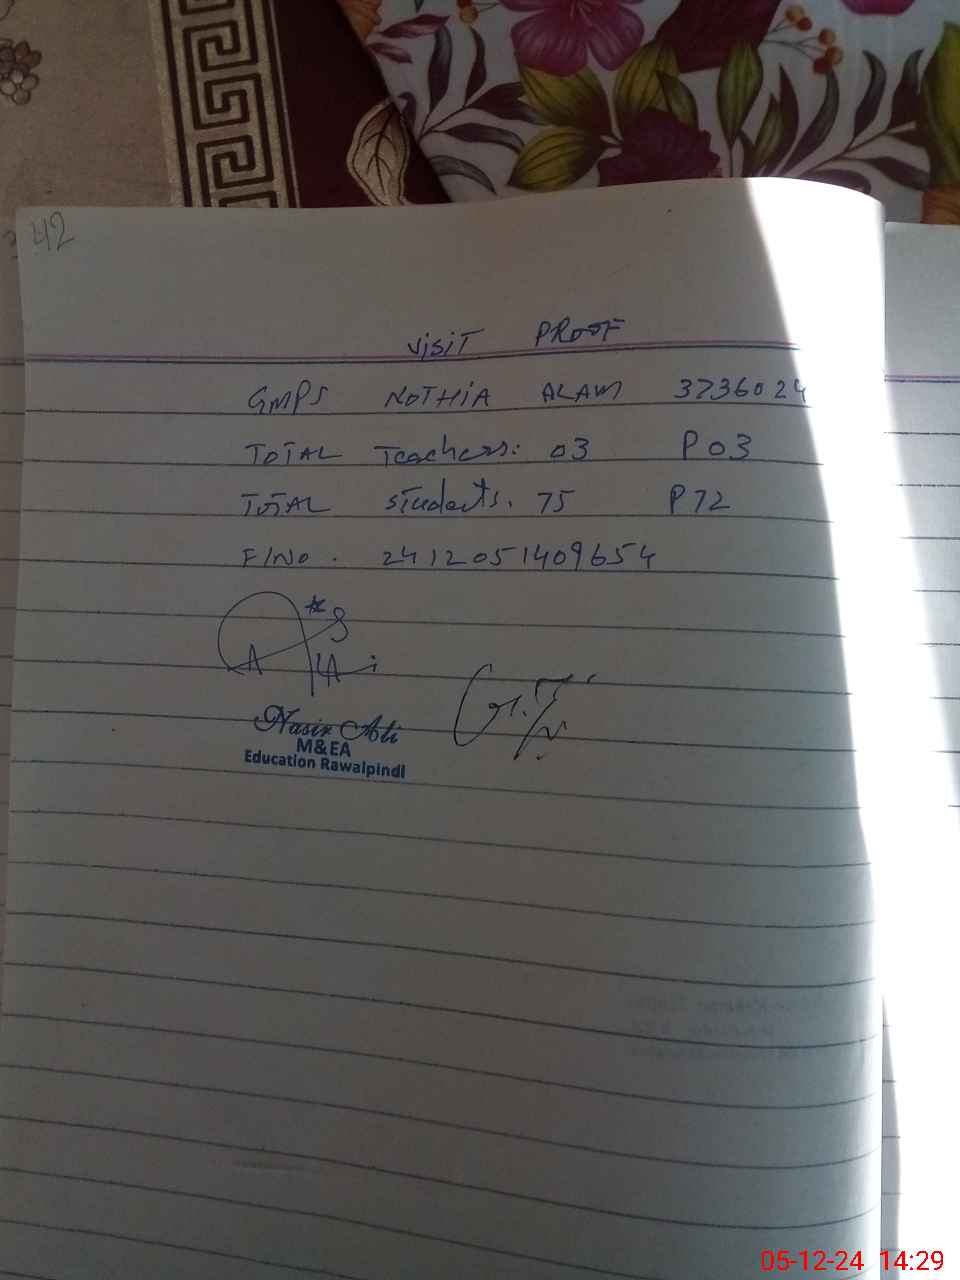 42
VISIT PROOF
GMPS NOTHIA ALAM 3736024
TOTAL Teachers: 03 P 03
TOTAL students. 75 P 72
F/No. 2412051409654
Nasir Ali
M&EA
Education Rawalpindi
05-12-24 14:29